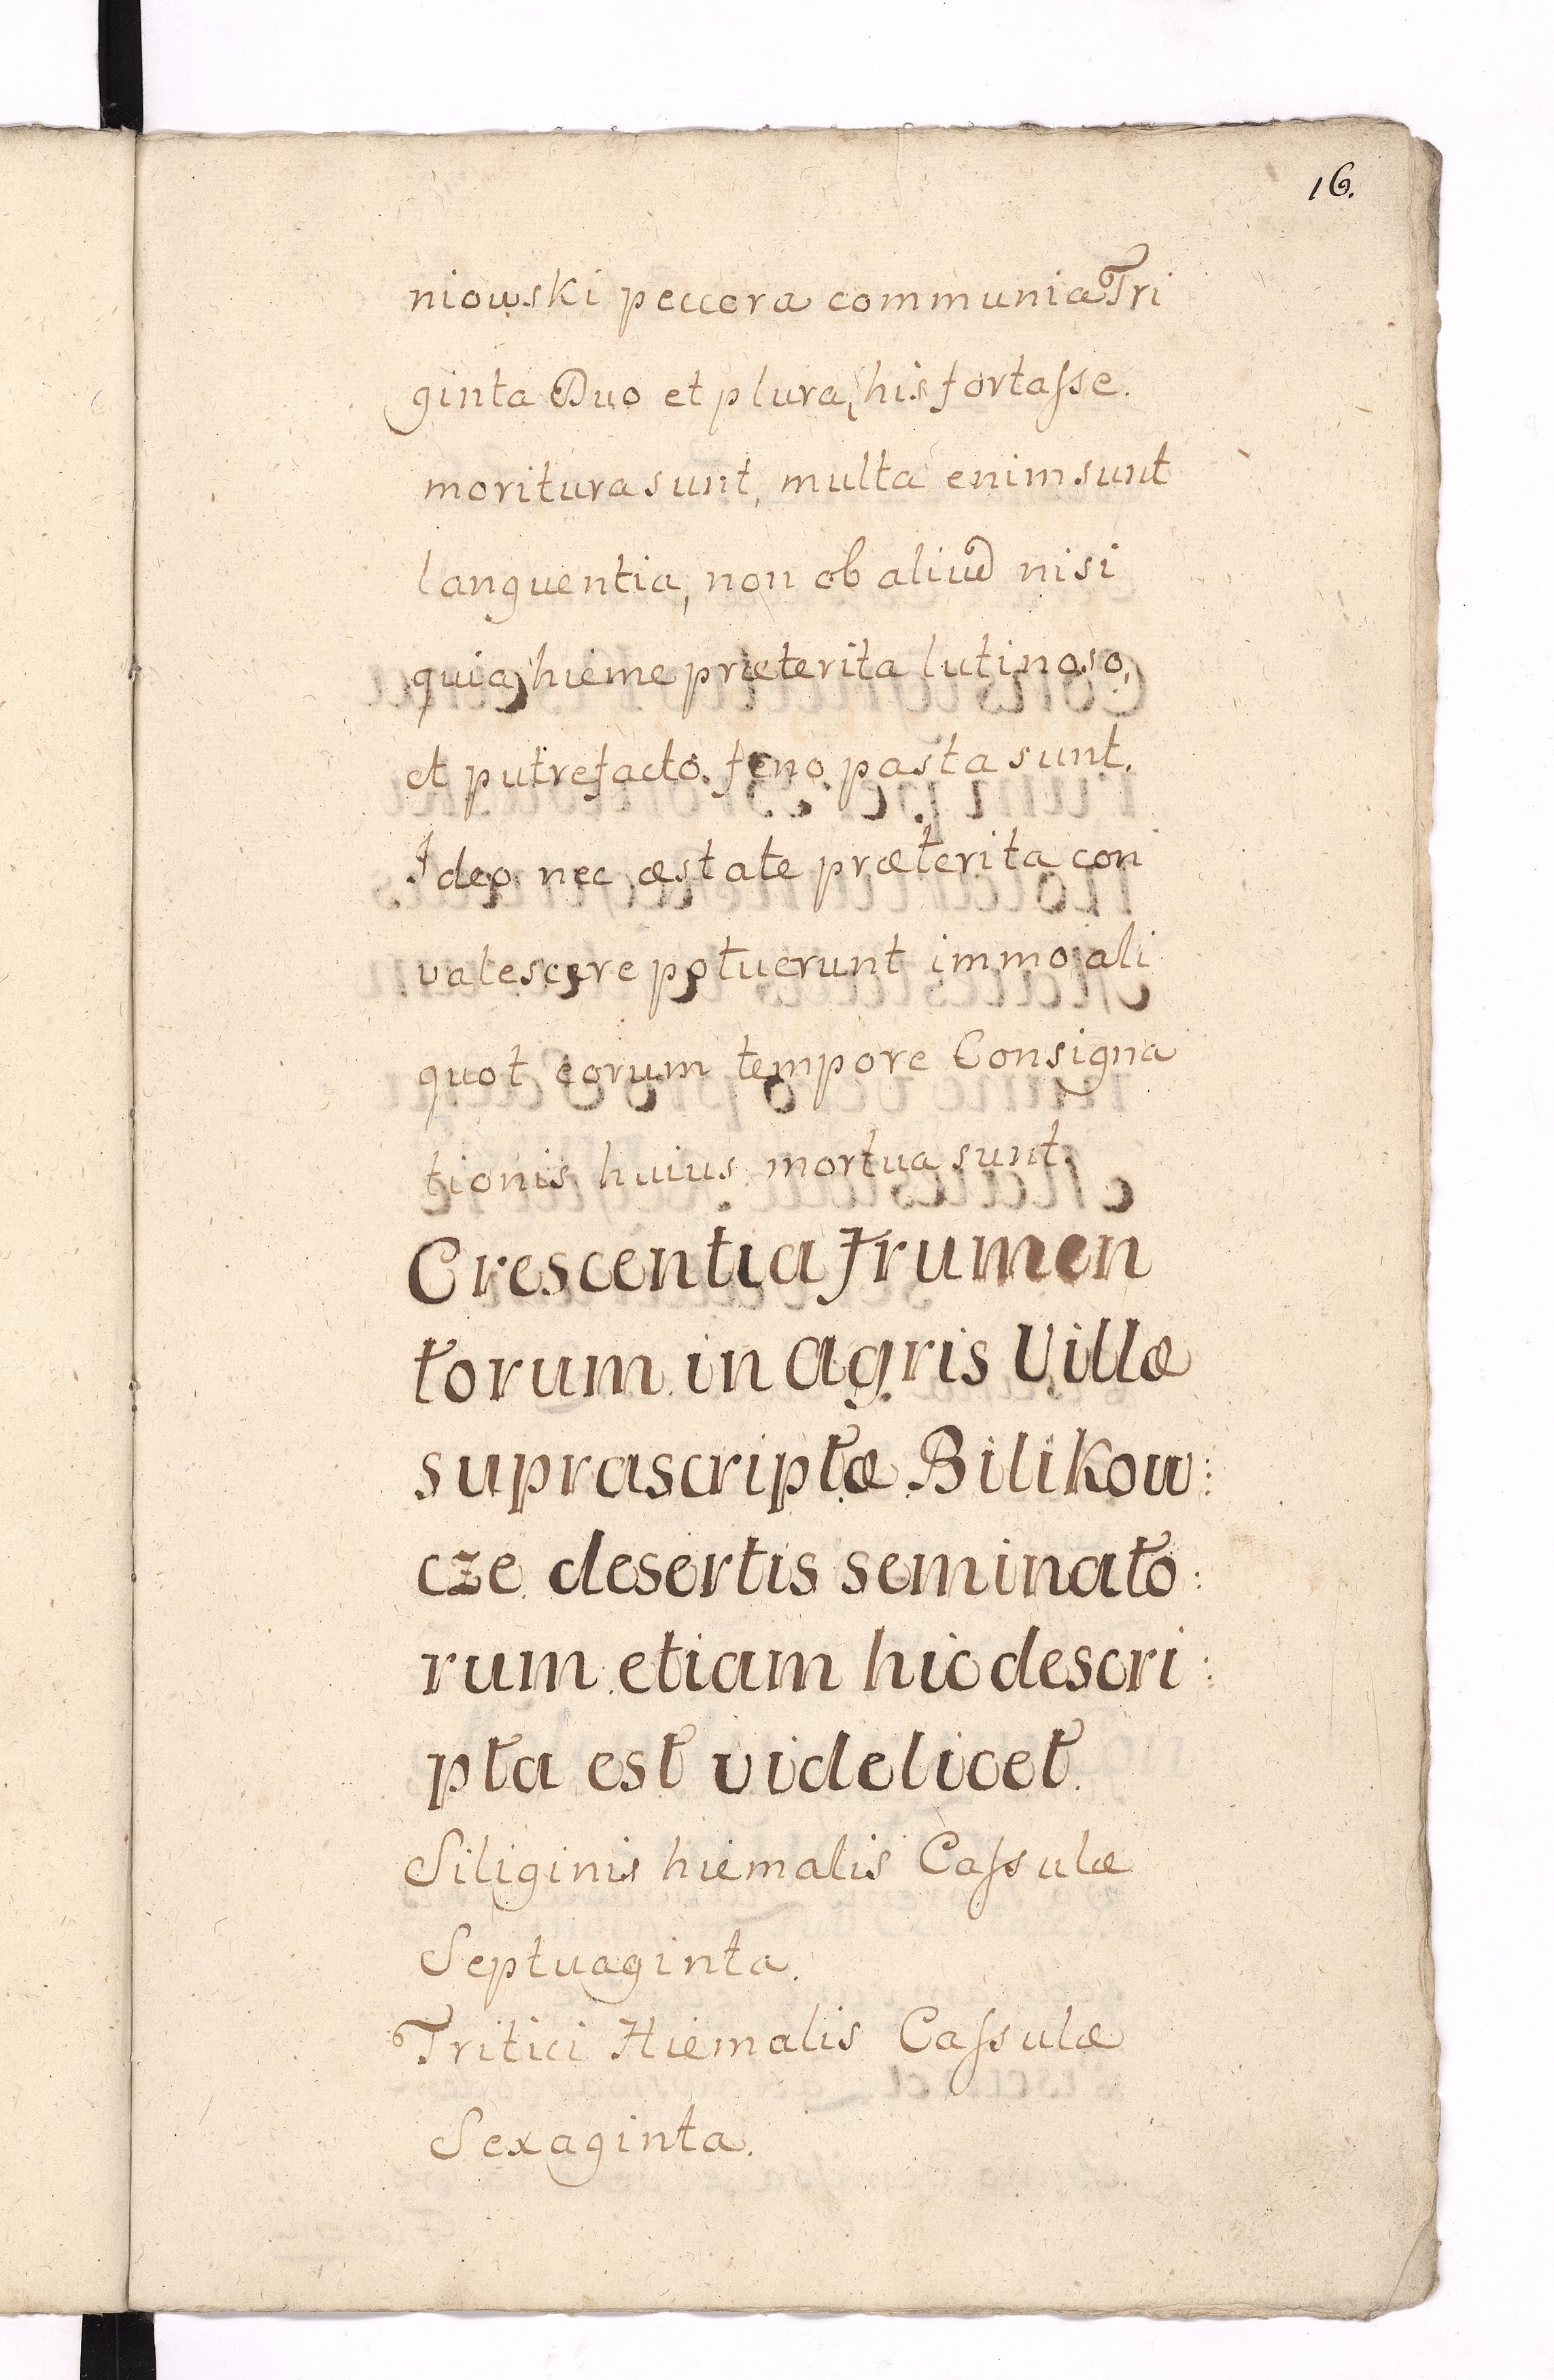 16.
niowski peccora communia Tri
ginta Duo et plura, his fortaſse.
moritura sunt, multa enim sunt
languentia, non ob aliud nisi
quia hieme præterita lutinoso,
et putrefacto feno pasta sunt.
Ideo nec æstate præterita con
valescere potuerunt immo ali
quot eorum tempore Consigna
tionis huius mortua sunt.
Crescentia frumen
torum in agris Villæ
suprascriptæ Bilikow:
cze desertis seminato:
rum etiam hic descri:
pta est videlicet.
Siliginis hiemalis Caſsulæ
Septuaginta.
Tritici Hiemalis Caſsulæ
Sexaginta.